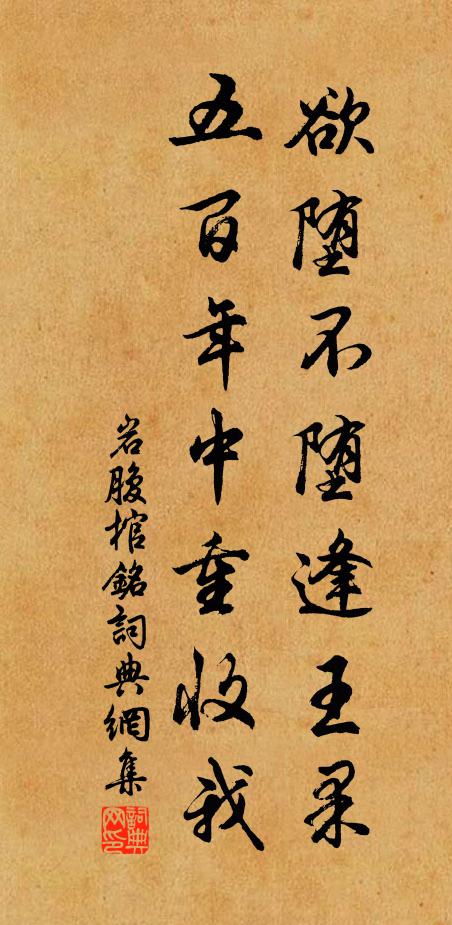 欲堕不堕逢王果
五百年中重收我
岩腹棺銘詞典網集
詞典網印